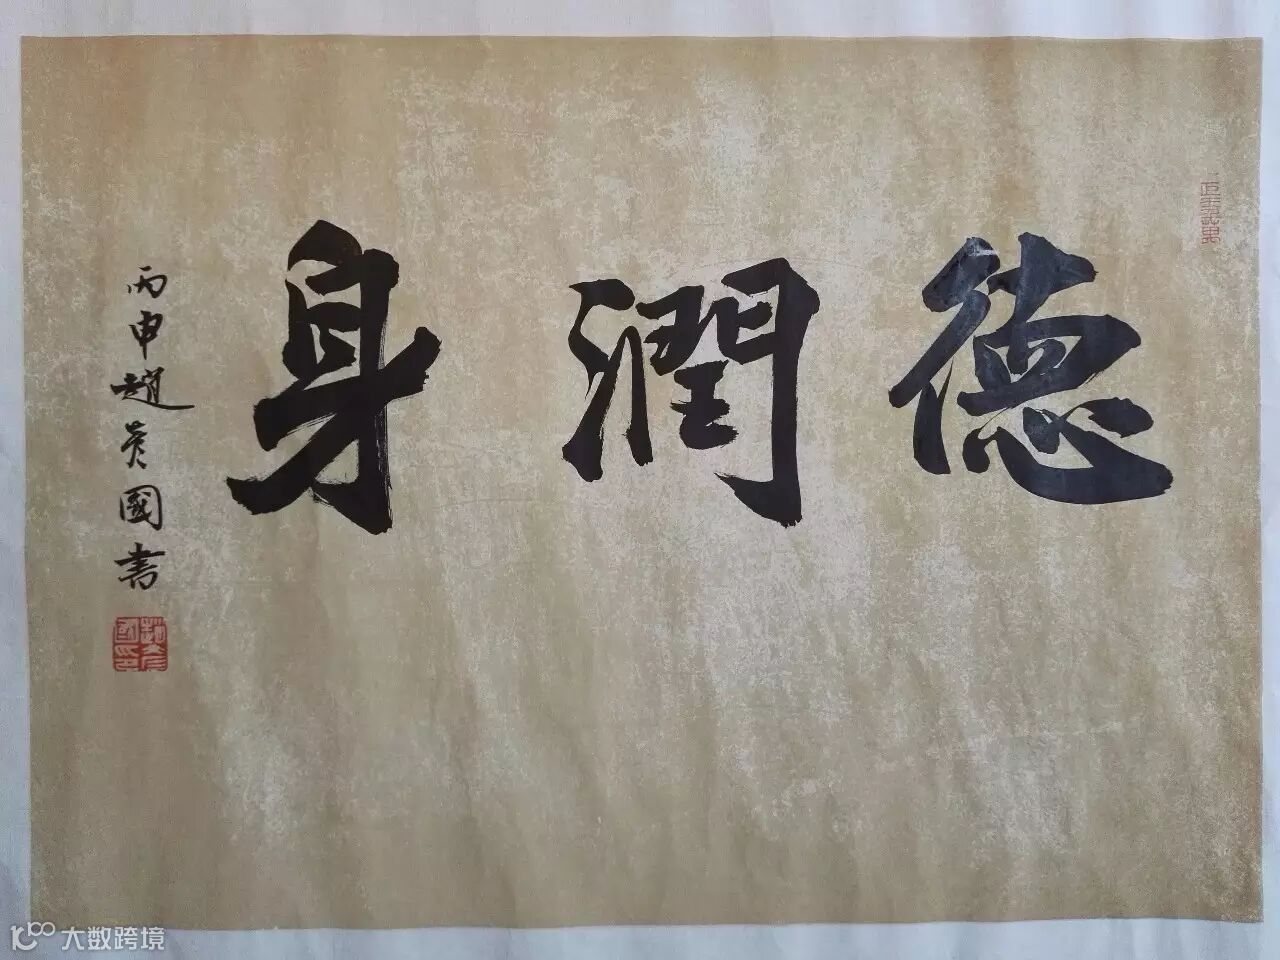 德潤身
丙申趙國書
大数跨境